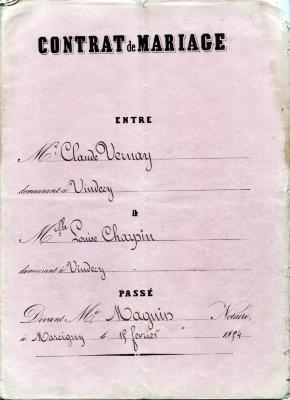 CONTRAT de MARIAGE
ENTRE
Mr. Claude Vernay
demeurant à Vindecy
&
Melle Louise Charpin
demeurant à Vindecy
PASSÉ
Devant Me Magnin Notaire,
à Marcigny le 15 février 1894